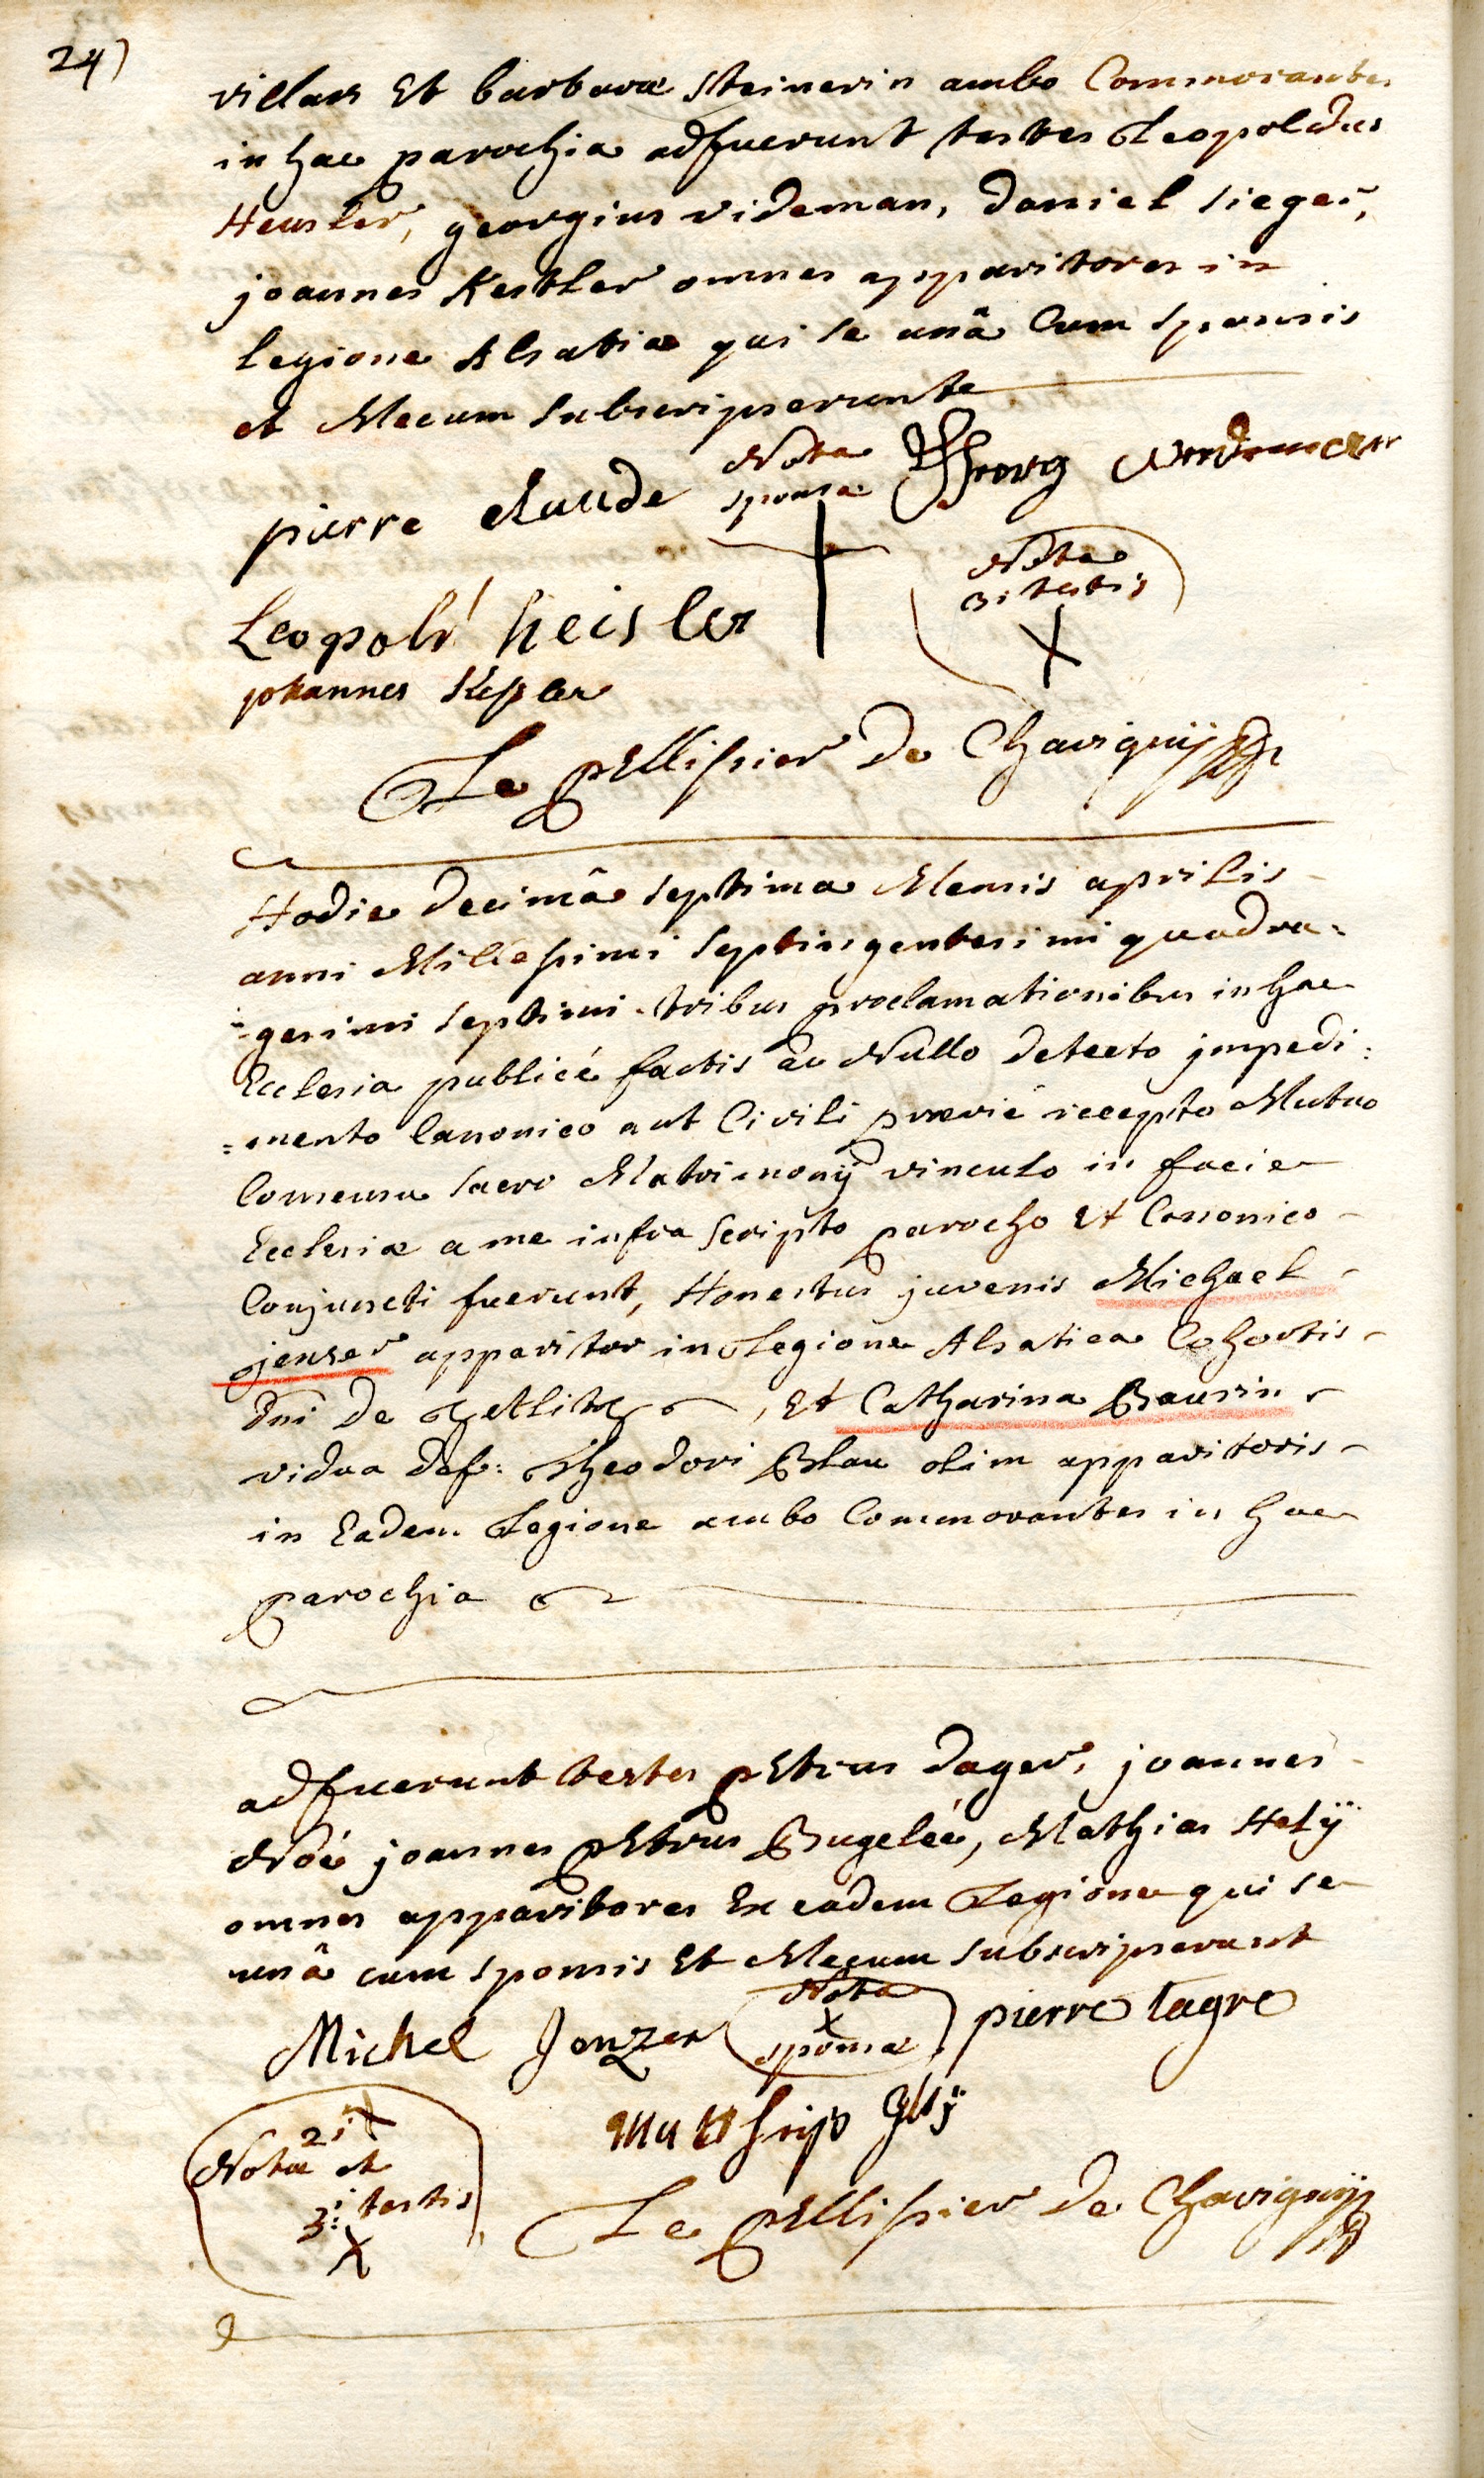 247
villars Et barbara Steinerin ambo Commorantes
in hac parochia adfuerunt testes Leopoldus
Heusler, georgius videman, daniel sieger,
joannes Kestler omnes apparitores in
legione Alsatiæ qui se unâ Cum sponsis
et Mecum subscripserunt
pierre claude Nota sponsæ Georg
Nota
3i testis
X
Leopold heisler
johannes Kessler
Le pEllissier de Chavignÿ
Hodie decimâ septima Mensis aprilis
anni Millesimi septingentesimi quadra=
=gesimi septimi tribus proclamationibus in hac
Ecclesia publicé factis ac Nullo detecto jmpedi=
=mento Canonico aut Civili prævié recepto Mutuo
Consensu sacro Matrimonij vinculo in facie
Ecclesiæ a me infra scripto parocho Et Canonico
Conjuncti fuerunt, Honestus juvenis Michael
jenser apparitor in Legione Alsatica Cohortis
dni de , Et Catharina Baurin
vidua def: Theodori Blau olim apparitoris
in Eadem Legione ambo Commorantes in hac
parochia
adfuerunt testes pEtrus dager, joannes
Noé joannes pEtrus Bugelée, Mathias Helÿ
omnes apparitores Ex eadem Legione qui se
unâ cum sponsis Et Mecum subscripserunt
Michel Jenzer Nota X sponsæ pierre tagre
2i X
Notæ et
3i testis
X
Le pEllissier de Chavignÿ